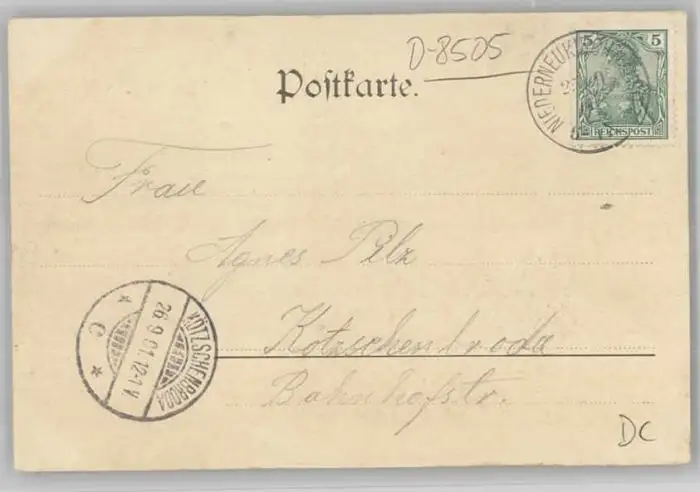 D-8505
Poſtkarte.
5 5
REICHSPOST
Frau
Agnes Pilz
Kötzschenbroda
Bahnhofstr.
KÖTZSCHENBRODA
26.9.01.12-1V.
C
DC